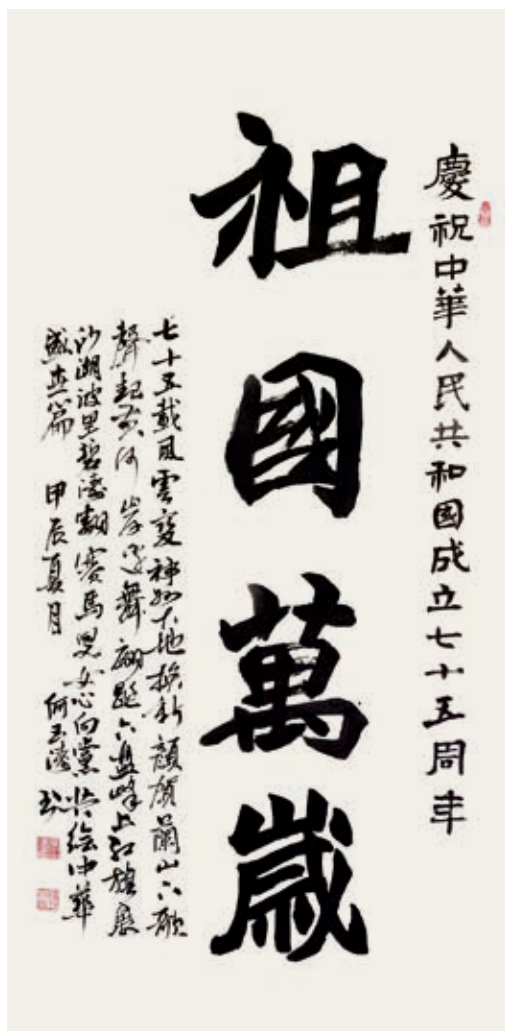 慶祝中華人民共和國成立七十五周年
祖國萬歲
七十五載風雲變神州大地換新顏賀蘭山下歌
聲起黃河岸邊舞翩跹六盤峰上紅旗展
沙湖波里碧濤翻賽馬兒女心向黨共繪中華
盛世篇 甲辰夏月 何玉